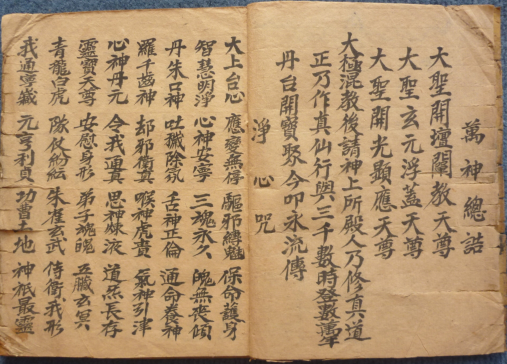 萬神總誥
大聖開壇闡教天尊
大聖玄元浮蓋天尊
大聖開光顯應天尊
大極混教後請神上所殿人乃修真道
正乃作真仙行與三千數時登數萬年
丹台開寶聚今叩永流傳
淨心咒
大上台心 應變無停 驅邪縛魅 保命護身
智慧明淨 心神安寧 三魂永久 魄無喪傾
丹朱口神 吐穢除氛 舌神正倫 通命養神
羅千齒神 却邪衛真 喉神虎賁 氣神引津
心神丹元 令我通真 思神煉液 道炁長存
靈寶天尊 安慰身形 弟子魂魄 五臟玄冥
青龍白虎 隊仗紛紜 朱雀玄武 侍衛我形
我通寧 元亨利貞 功曹土地 神祇最靈